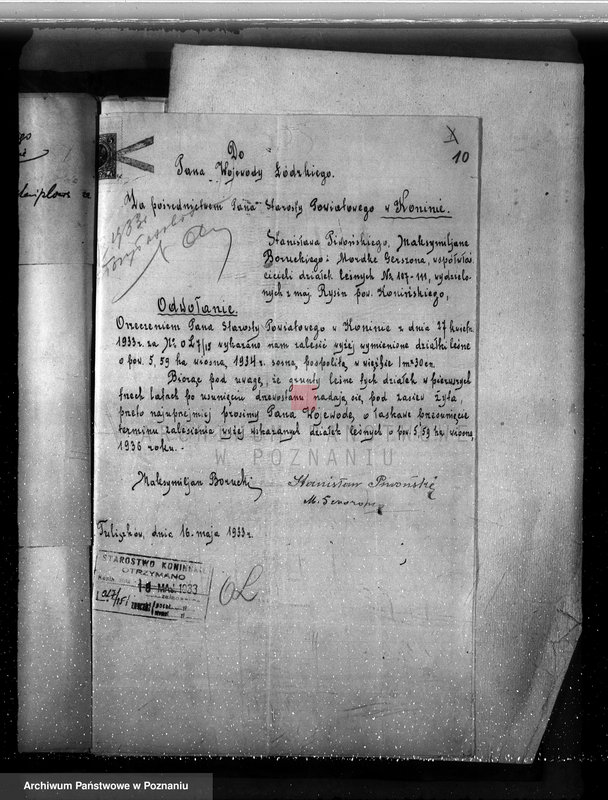 10
Do
Pana Wojewody Łódzkiego.
Za pośrednictwem Pana Starosty Powiatowego w Koninie.
Stanisława Piwońskiego, Maksymiljana
Boruckiego i Mordke Gerszona, współwłaś
cicieli działek leśnych № 107-111, wydzielo-
nych z maj. Rysin pow. Konińskiego,
Odwołanie.
Orzeczeniem Pana Starosty Powiatowego w Koninie z dnia 27 kwietn.
1933 r. za № OL 7/15 wykazano nam zalesić wyżej wymienione działki leśne
o pow. 5,59 ha wiosną 1934 r. sosną pospolitą w więźbie
Biorąc pod uwagę, że grunty leśne tych działek w pierwszych
trzech latach po usunięciu drzewostanu nadają się pod zasiew żyta,
przeto najuprzejmiej prosimy Pana Wojewodę, o łaskawe przesunięcie
terminu zalesienia wyżej wskazanych działek leśnych o pow. 5,59 ha wiosną
1936 roku.
W POZNANIU
Maksymiljan Borucki
Stanisław Piwoński
Tuliszków, dnia 16 maja 1933 r.
STAROSTWO KONIŃSKIE
OTRZYMANO
18 MAJ 1933
OL
Archiwum Państwowe w Poznaniu